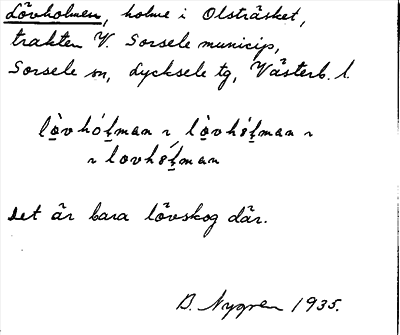 Lövholmen, holme i Olsträsket,
trakten V. Sorsele municip,
Sorsele sn, Lycksele tg, Västerb. l.
lo̱̊vhó̱ḻman ~ lo̱̊vhóḻman ~
~ lovhóḻman
Det är bara lövskog där.
B. Nygren 1935.